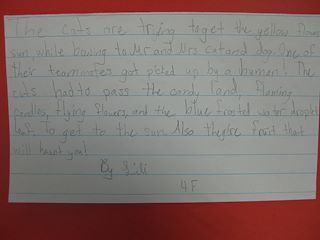 The cats are trying to get the yellow flower
sun, while bowing to Mr and Mrs cat and dog. One of
their teammates got picked up by a human! The
cats had to pass the candy land, flaming
candles, flying flowers, and the blue frosted water droplet
leaf, to get to the sun. Also they're fruit that
will haunt you!
By Lili
4F